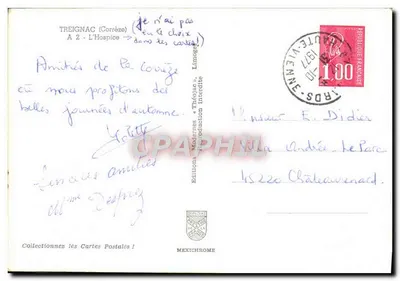 TREIGNAC (Corrèze)
A 2 - L'Hospice
(je n'ai pas
eu le choix
dans les cartes!)
Amitiés de la Corrèze
où nous profitons des
belles journées d'automne.
Mme
Collectionnez les Cartes Postales !
Editions Modernes « Théojac », Limoges
Reproduction interdite
MEXICHROME
CARPHILA
REPUBLIQUE FRANÇAISE
1,00
POSTES
HAUTE-VIENNE
1977
Monsieur E. Didier
Villa André-Le Parc
45220 Châteaurenard